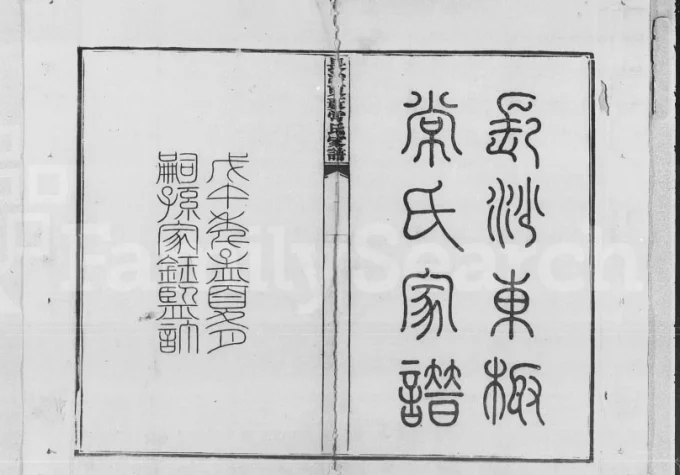 長沙東
常氏家譜
長沙東常氏家譜
戊午年孟夏月
嗣孫家監訂
FamilySearch